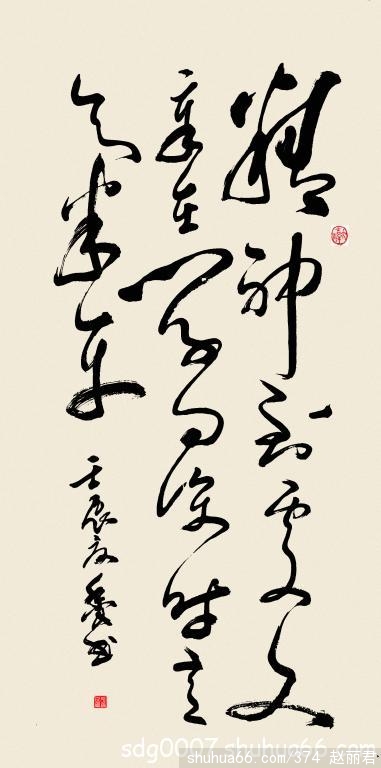 精神到处文
章老学问深时意
气平
壬辰夏
书
sdg0007.shuhua66.com
shuhua66.com/374 赵丽君